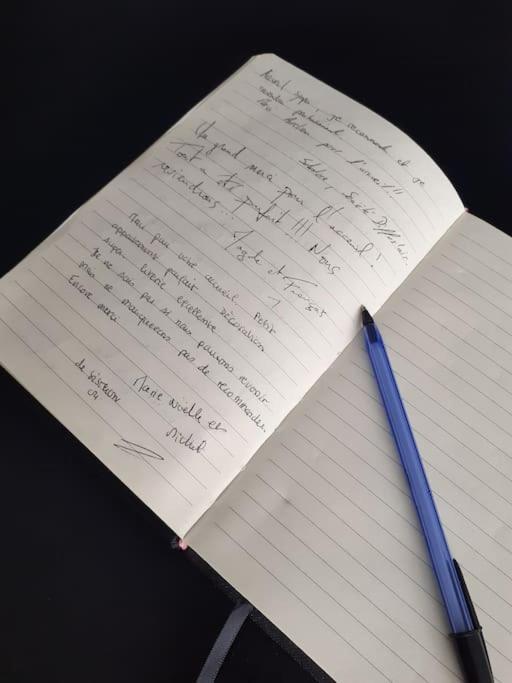 Accueil super, je recommande et je
reviendrai
pour l'accueil!!
Un grand merci pour l'accueil!
Tout a été parfait!!! Nous
reviendrons...
Magde et François
Merci pour votre accueil Petit
appartement parfait décoration
super literie excellente
Je ne sais pas si nous pourrons revenir
mais ne manquerons pas de recommander.
Encore merci
Marie Noëlle et
Michel
de Sisteron
04